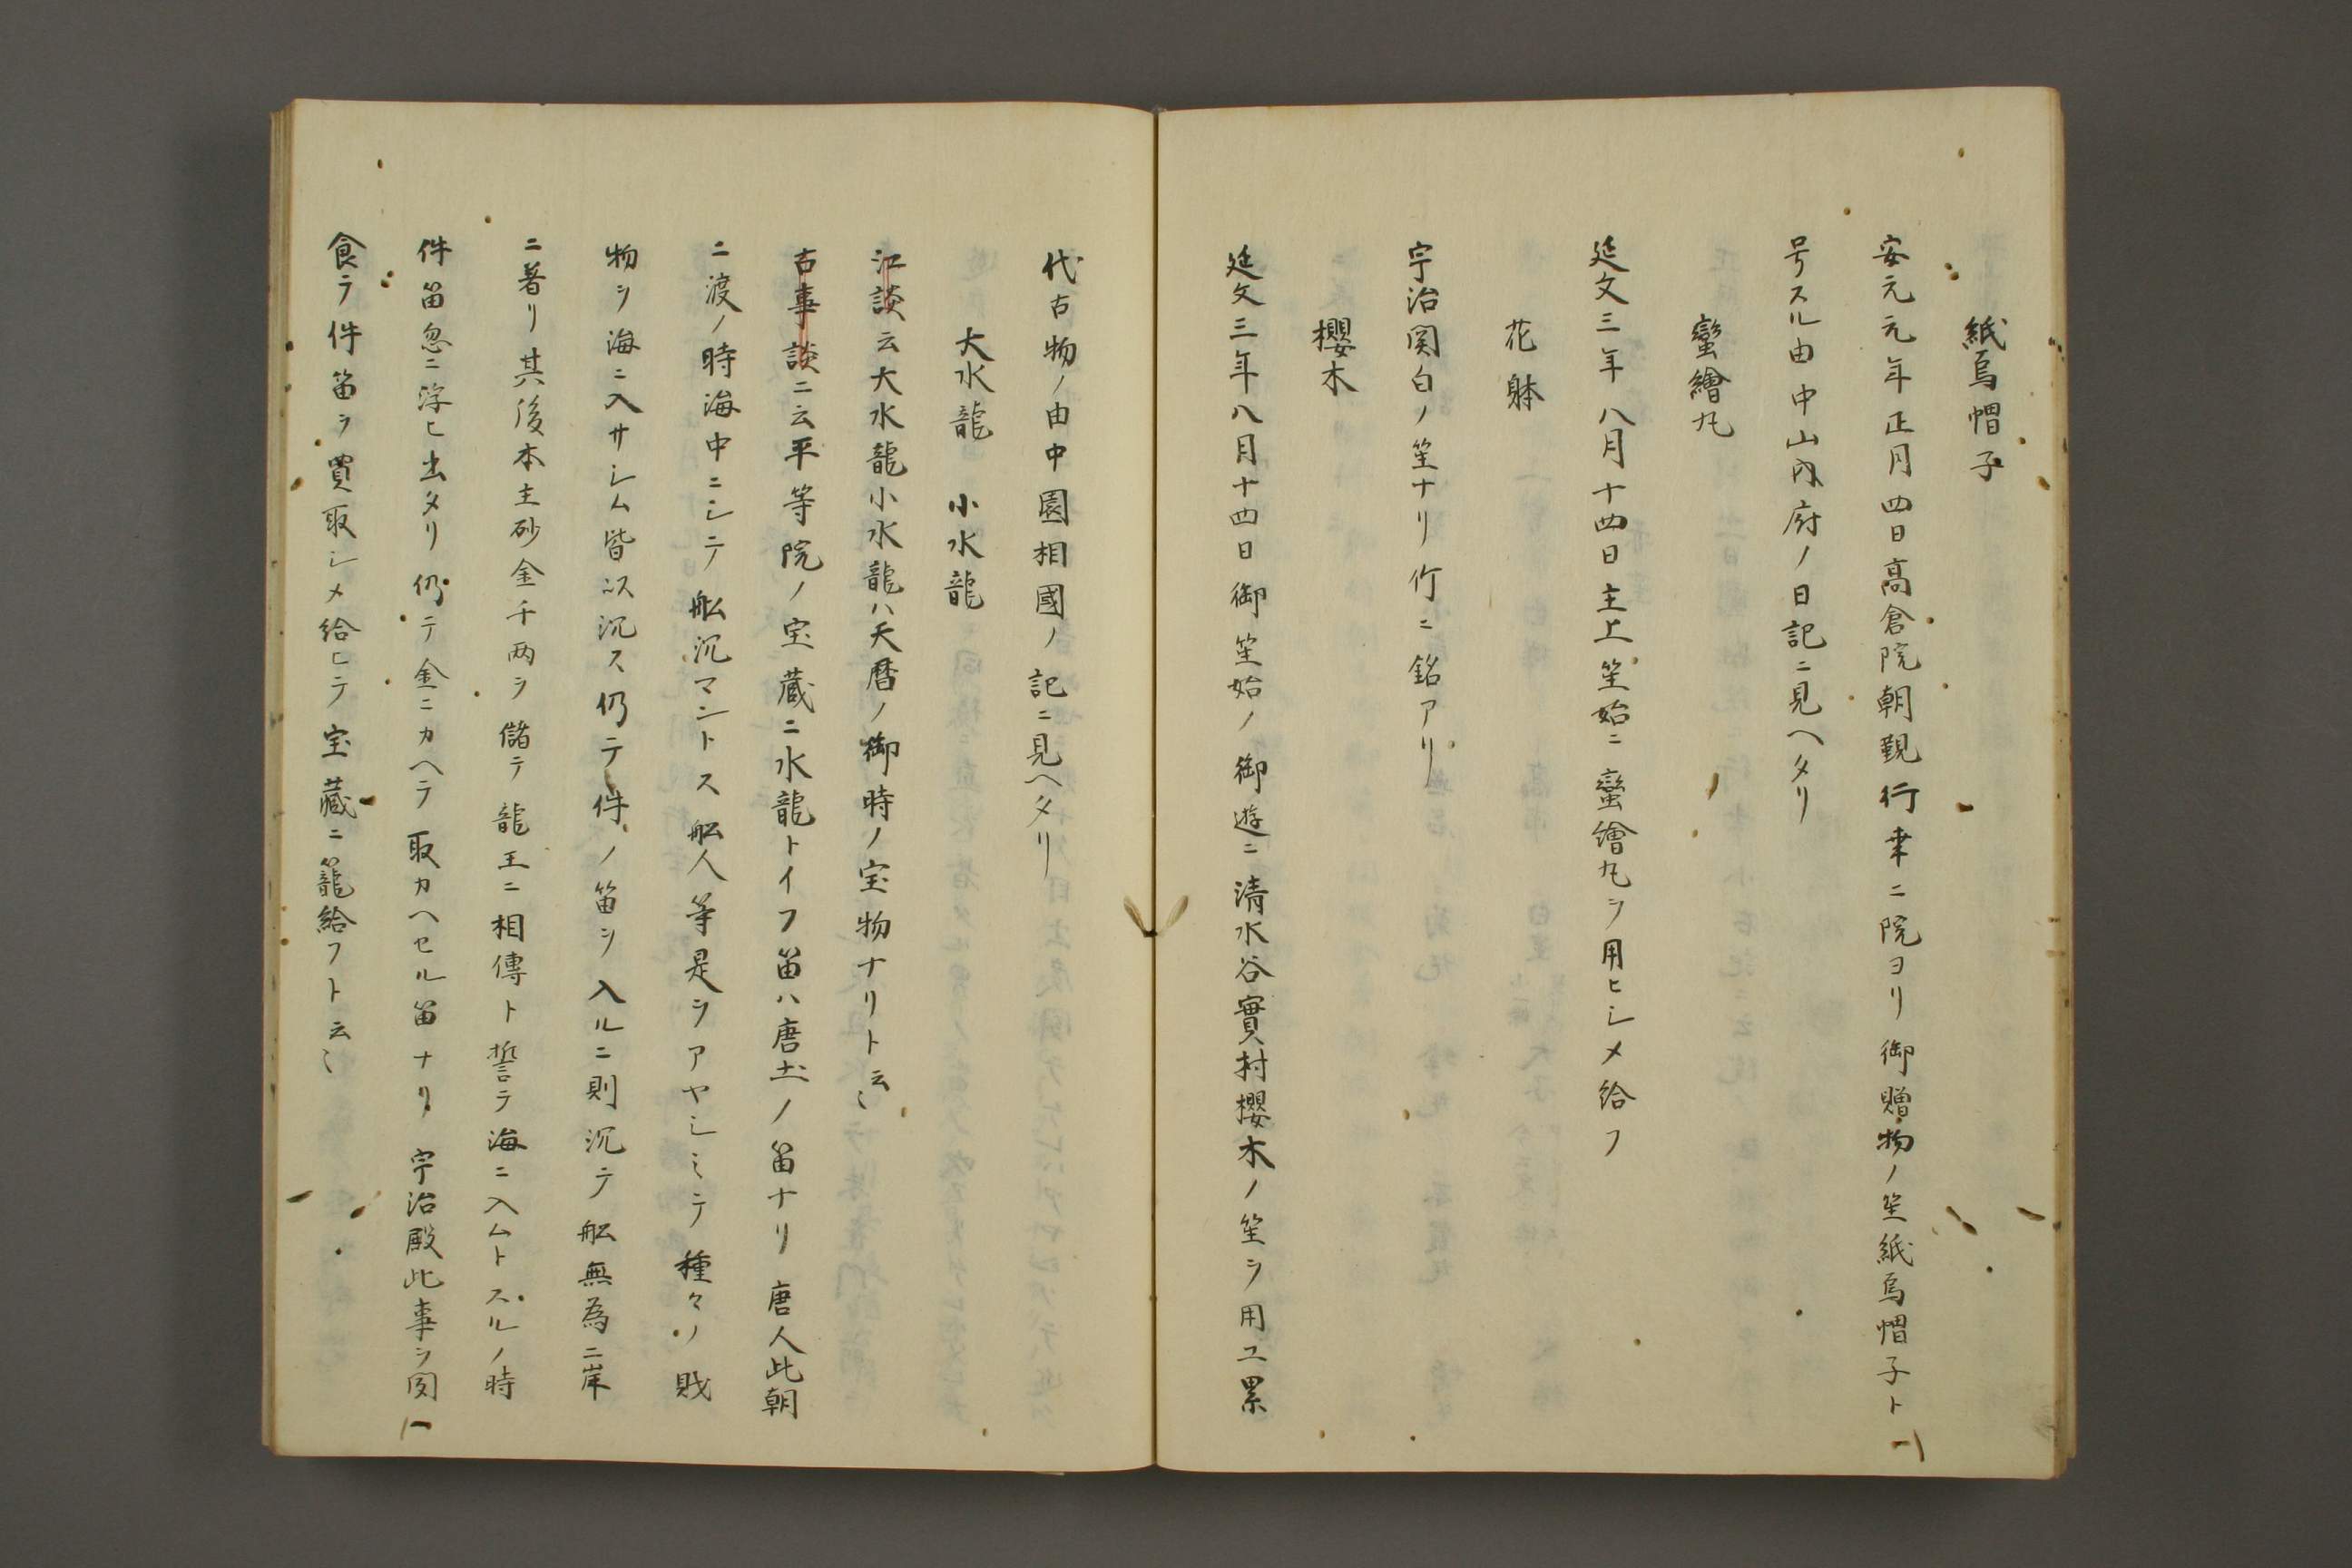 紙烏帽子
安元元年正月四日高倉院朝覲行幸ニ院ヨリ御贈物ノ笙紙烏帽子ト
号スル由中山内府ノ日記ニ見ヘタリ
蠻繪丸
延文三年八月十四日主上笙始ニ蠻繪丸ヲ用ヒシメ給フ
花躰
宇治関白ノ笙ナリ竹ニ銘アリ
櫻木
延文三年八月十四日御笙始ノ御遊ニ清水谷實村櫻木ノ笙ヲ用ユ累
代古物ノ由中園相國ノ記ニ見ヘタリ
大水龍 小水龍
江談云大水龍小水龍ハ天暦ノ御時ノ宝物ナリト云〻
古事談ニ云平等院ノ宝蔵ニ水龍トイフ笛ハ唐土ノ笛ナリ唐人此朝
ニ渡ノ時海中ニシテ舩沉マントス舩人等是ヲアヤシミテ種々ノ財
物ヲ海ニ入サシム皆以沉ス仍テ件ノ笛ヲ入ルニ則沉テ舩無為ニ岸
ニ著リ其後本主砂金千両ヲ儲テ龍王ニ相傳ト誓テ海ニ入ムトスルノ時
件笛忽ニ浮ヒ出タリ仍テ金ニカヘテ取カヘセル笛ナリ宇治殿此事ヲ聞
食テ件笛ヲ買取シメ給ヒテ宝蔵ニ籠給フト云〻